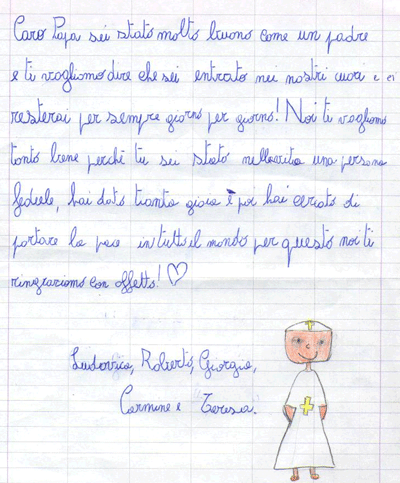 Caro Papa sei stato molto buono come un padre
e ti vogliamo dire che sei entrato nei nostri cuori e ci
resterai per sempre giorno per giorno! Noi ti vogliamo
tanto bene perché tu sei stato nella vita una persona
fedele, hai dato tanta gioia e poi hai cercato di
portare la pace in tutto il mondo per questo noi ti
ringraziamo con affetto!
Ludovica, Roberto, Giorgia,
Carmine e Teresa.